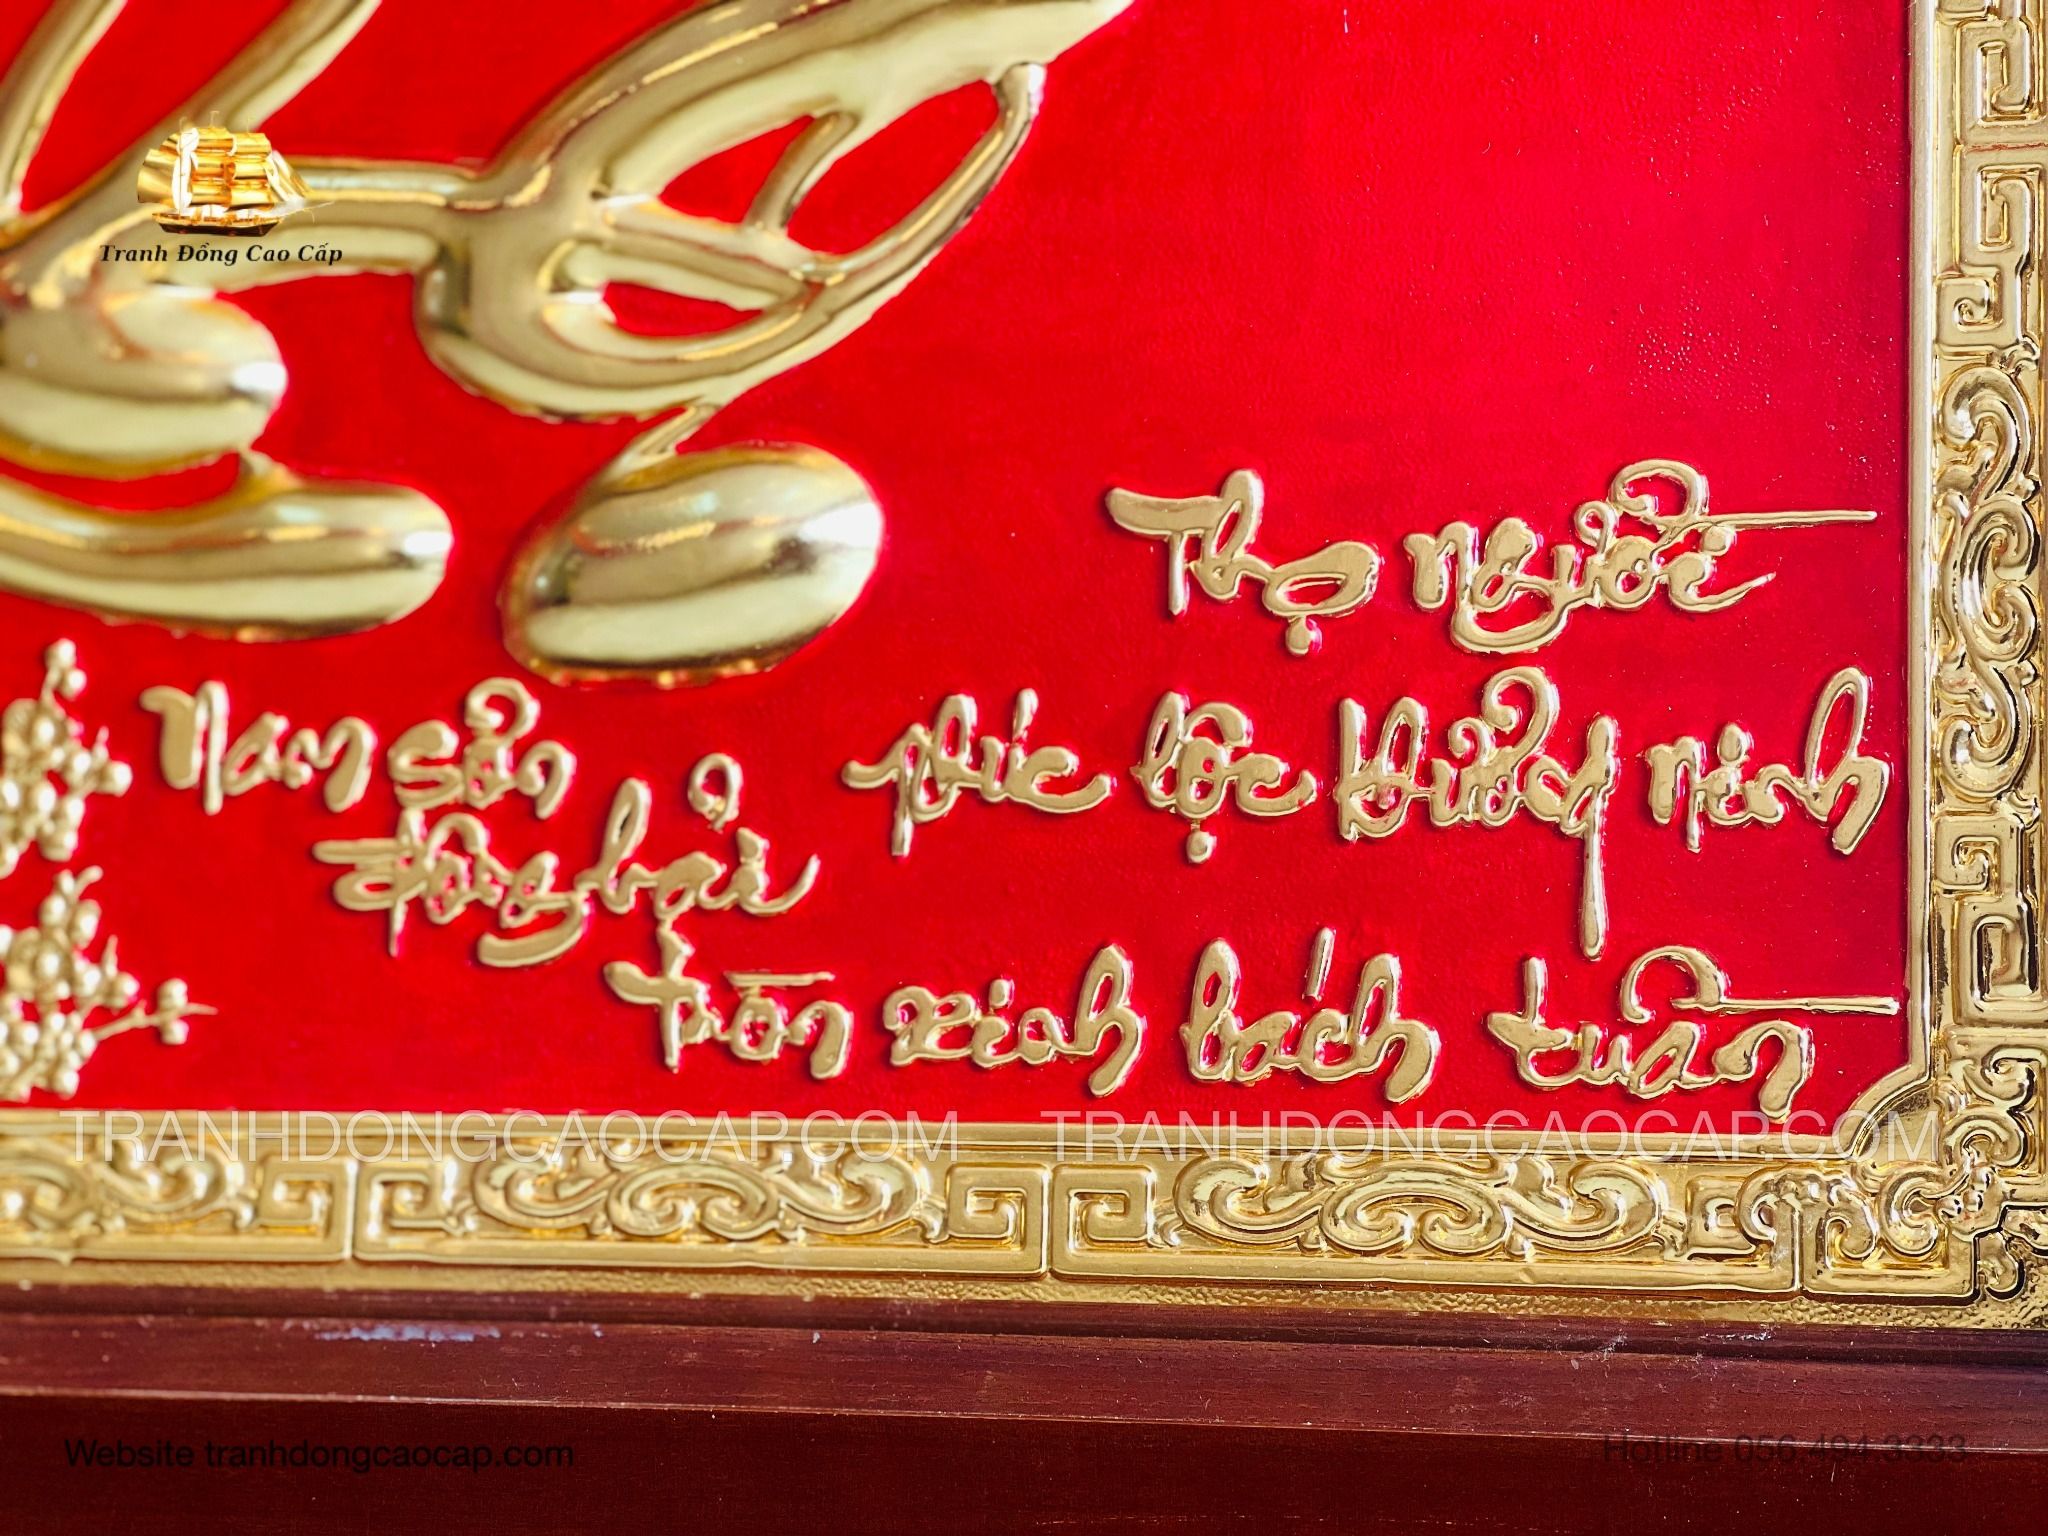 Tranh Đồng Cao Cấp
Thọ người
Nam sơn
phúc lộc khương ninh
đông hải
tròn xinh bách tuần
TRANHDONGCAOCAP.COM TRANHDONGCAOCAP.COM
Website tranhdongcaocap.com
Hotline 056.494.3333